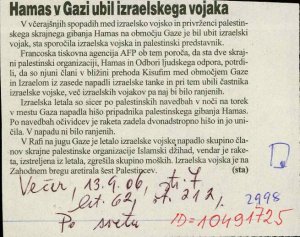 Hamas v Gazi ubil izraelskega vojaka
V včerajšnjih spopadih med izraelsko vojsko in privrženci palestin-
skega skrajnega gibanja Hamas na območju Gaze je bil ubit izraelski
vojak, sta sporočila izraelska vojska in palestinski predstavnik.
Francoska tiskovna agencija AFP ob tem poroča, da sta dve skraj-
ni palestinski organizaciji, Hamas in Odbori ljudskega odpora, potrdi-
li, da so njuni člani v bližini prehoda Kisufim med območjem Gaze
in Izraelom v zasede napadli izraelske tanke in pri tem ubili častnika
izraelske vojske, več izraelskih vojakov pa naj bi bilo ranjenih.
Izraelska letala so sicer po palestinskih navedbah v noči na torek
v mestu Gaza napadla hišo pripadnika palestinskega gibanja Hamas.
Po navedbah očividcev je raketa zadela dvonadstropno hišo in jo uni-
čila. V napadu ni bilo ranjenih.
V Rafi na jugu Gaze je letalo izraelske vojske napadlo skupino čla-
nov skrajne palestinske organizacije Islamski džihad, vendar je rake-
ta, izstreljena iz letala, zgrešila skupino moških. Izraelska vojska je na
Zahodnem bregu aretirala šest Palestincev. (sta)
Večer, 13.9.06, str. 7
let. 62, št. 212,
Po svetu
2998
ID=10491725